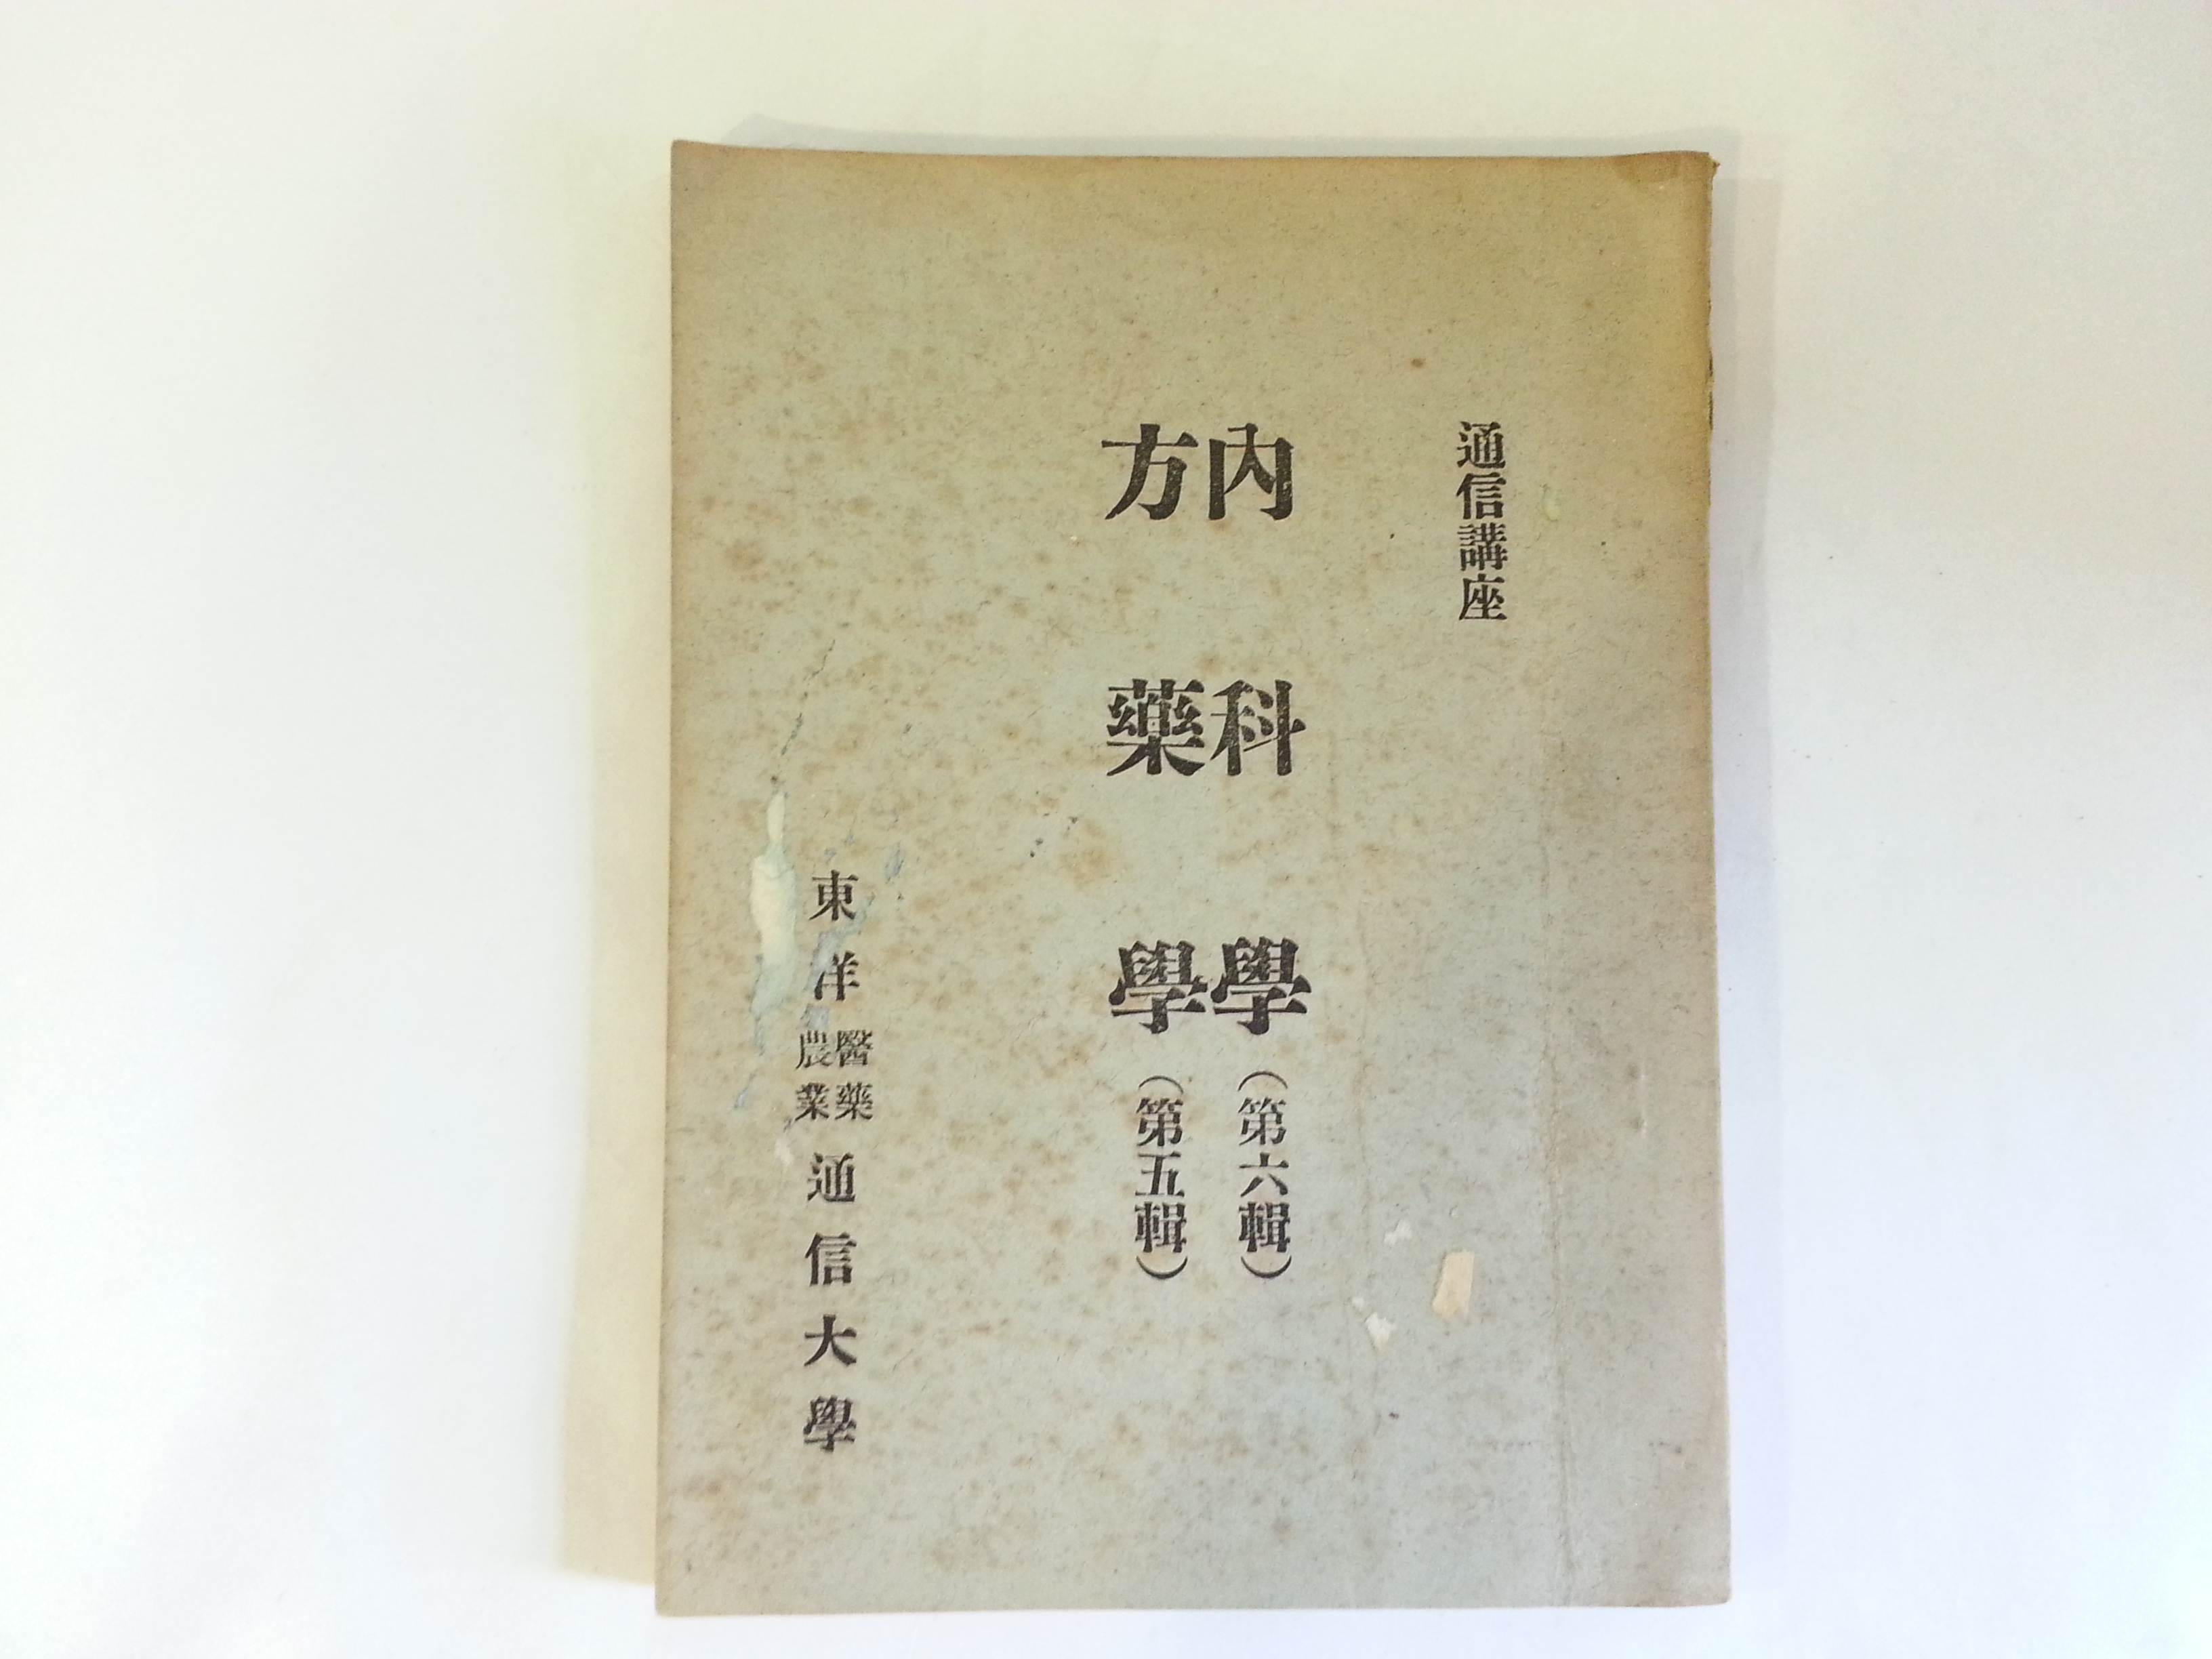 通信講座
內科學（第六輯）
方藥學（第五輯）
東洋醫藥農業通信大學